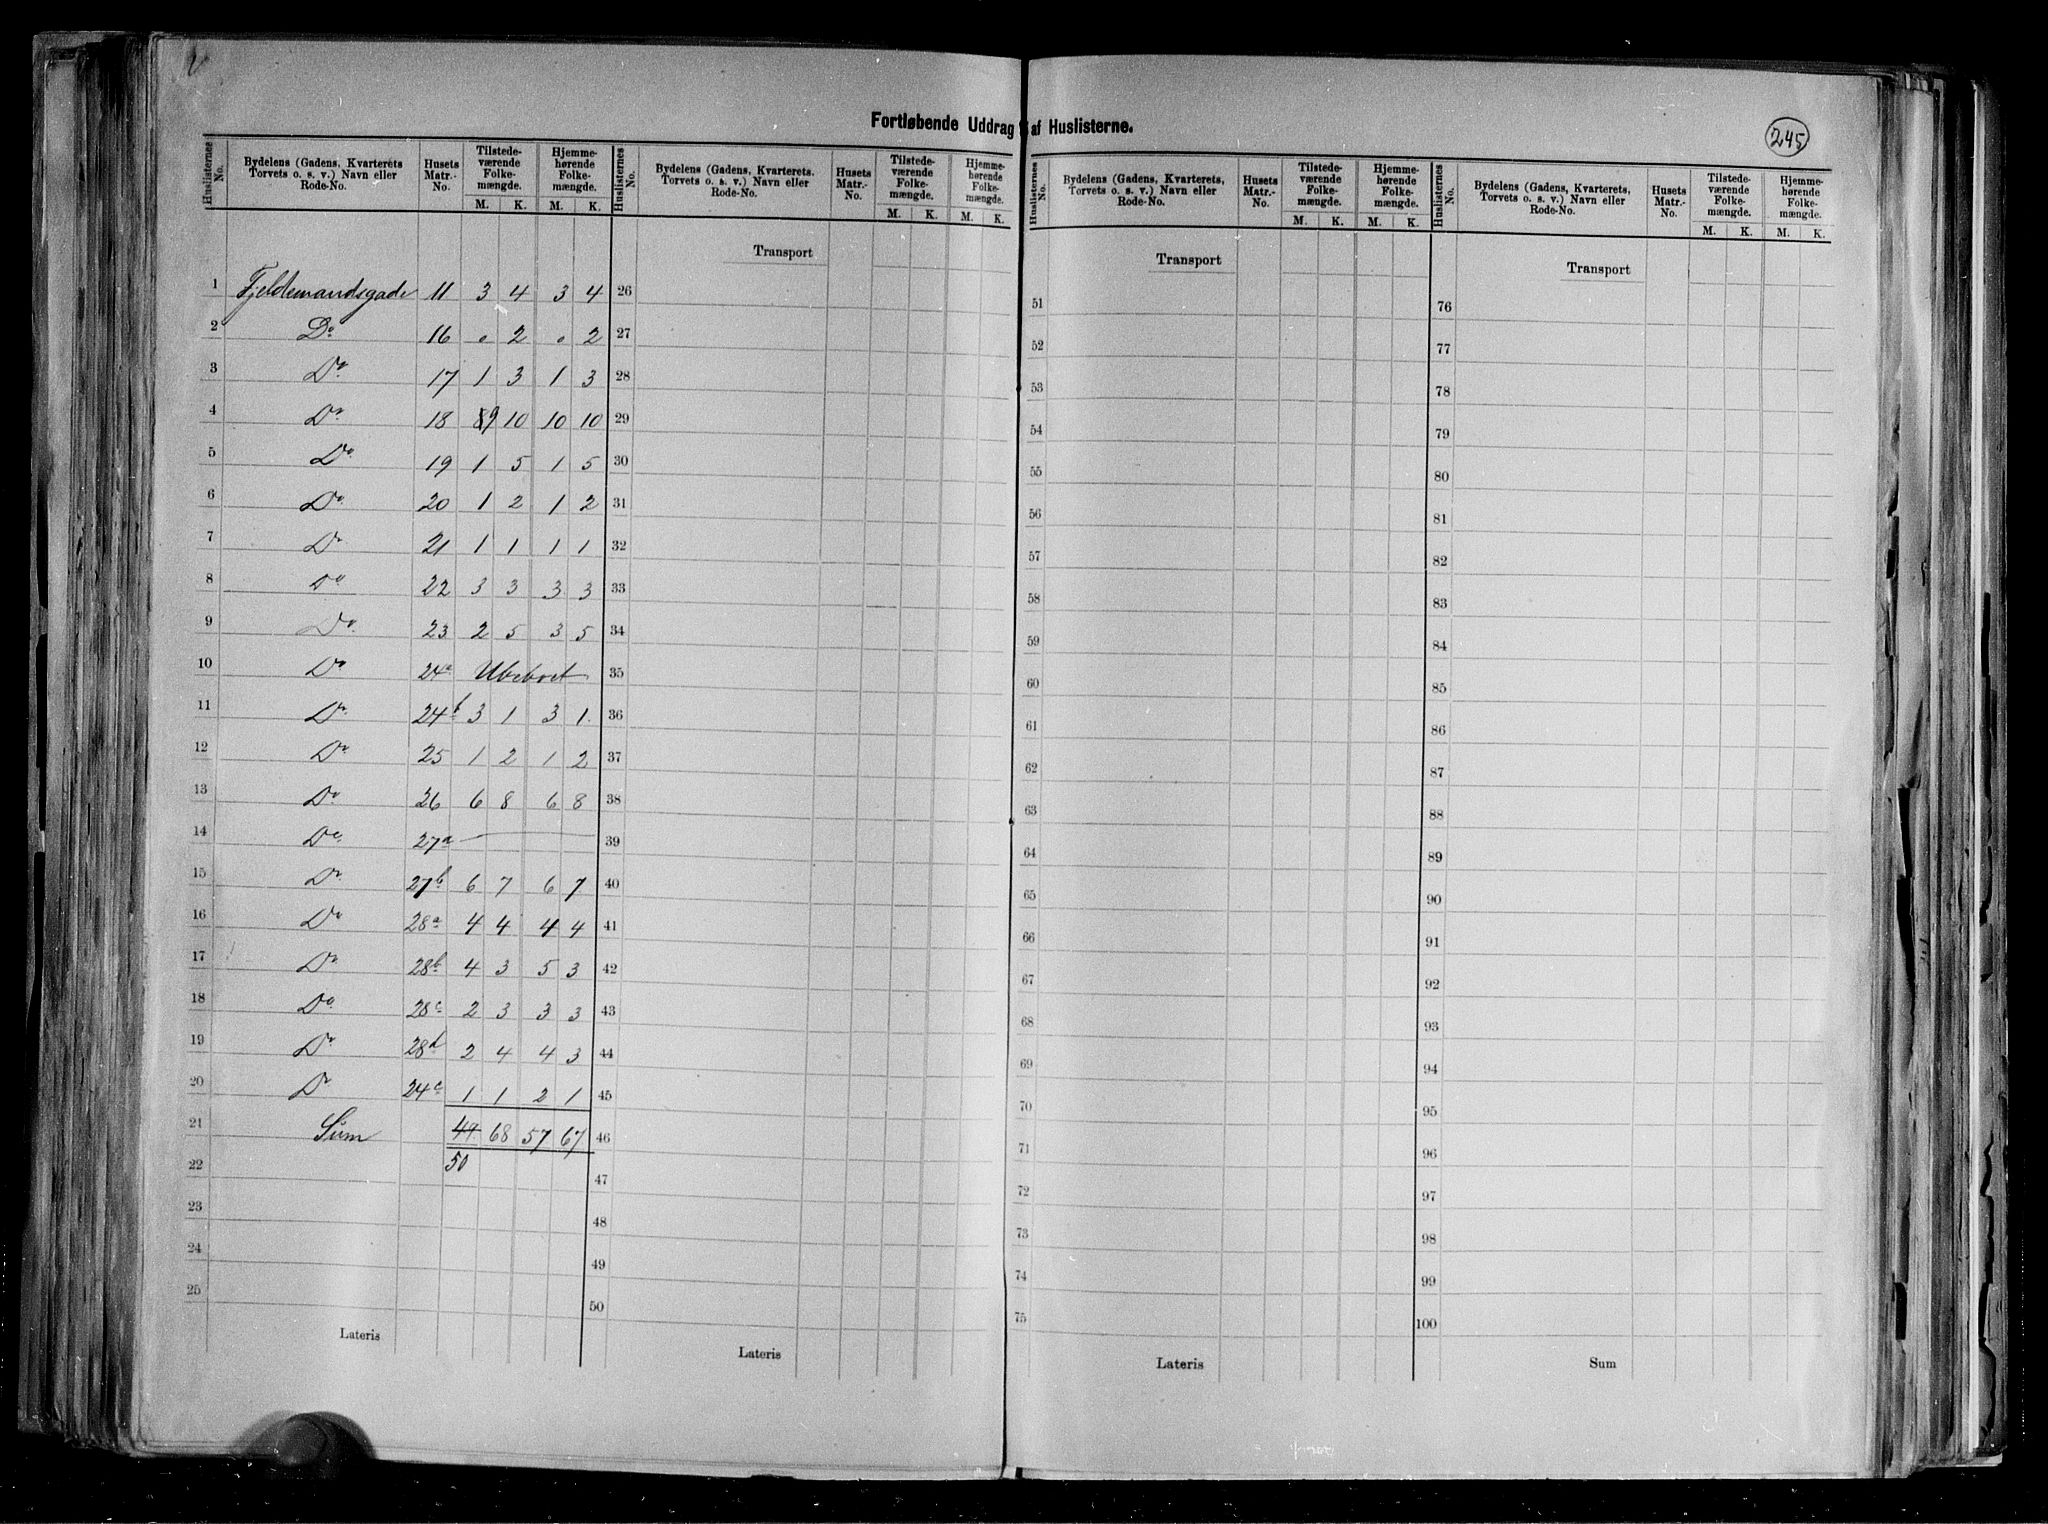 Fortløbende Uddrag af Huslisterne.
245
Huslisternes No. | Bydelens (Gadens, Kvarterets Torvets o. s. v.) Navn eller Rode-No. | Husets Matr.-No. | Tilstedeværende Folkemængde. M. K. | Hjemmehørende Folkemængde. M. K.
1 Fjeldemandsgade 11 3 4 3 4
2 Do 16 0 2 0 2
3 Do 17 1 3 1 3
4 Do 18 9 10 10 10
5 Do 19 1 5 1 5
6 Do 20 1 2 1 2
7 Do 21 1 1 1 1
8 Do 22 3 3 3 3
9 Do 23 2 5 3 5
10 Do 24a Ubeboet
11 Do 24b 3 1 3 1
12 Do 25 1 2 1 2
13 Do 26 6 8 6 8
14 Do 27a —
15 Do 27b 6 7 6 7
16 Do 28a 4 4 4 4
17 Do 28b 4 3 5 3
18 Do 28c 2 3 3 3
19 Do 28d 2 4 4 3
20 Do 24c 1 1 2 1
21 Sum 49 68 57 67
22 50
23
24
25
Lateris
Huslisternes No. | Bydelens (Gadens, Kvarterets, Torvets o. s. v.) Navn eller Rode-No. | Husets Matr.-No. | Tilstedeværende Folkemængde. M. K. | Hjemmehørende Folkemængde. M. K.
Transport
26
27
28
29
30
31
32
33
34
35
36
37
38
39
40
41
42
43
44
45
46
47
48
49
50
Lateris
Huslisternes No. | Bydelens (Gadens, Kvarterets, Torvets o. s. v.) Navn eller Rode-No. | Husets Matr.-No. | Tilstedeværende Folkemængde. M. K. | Hjemmehørende Folkemængde. M. K.
Transport
51
52
53
54
55
56
57
58
59
60
61
62
63
64
65
66
67
68
69
70
71
72
73
74
75
Lateris
Huslisternes No. | Bydelens (Gadens, Kvarterets, Torvets o. s. v.) Navn eller Rode-No. | Husets Matr.-No. | Tilstedeværende Folkemængde. M. K. | Hjemmehørende Folkemængde. M. K.
Transport
76
77
78
79
80
81
82
83
84
85
86
87
88
89
90
91
92
93
94
95
96
97
98
99
100
Sum